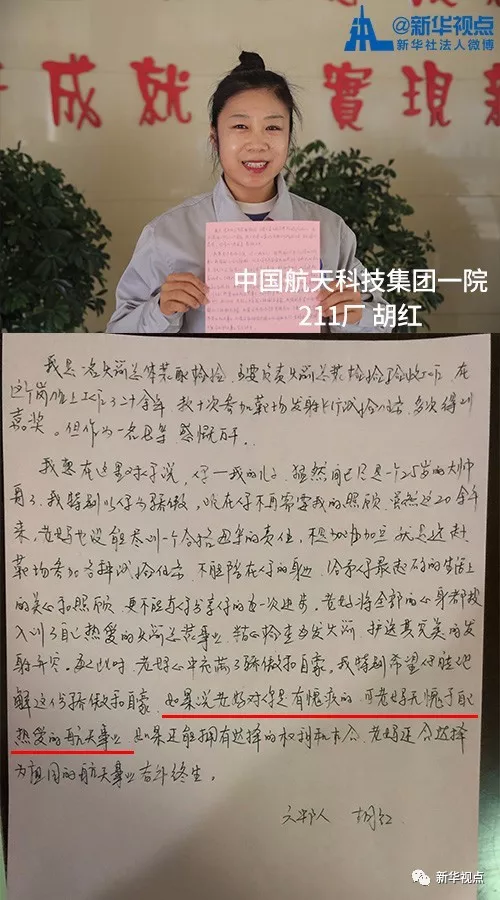 @新华视点
新华社法人微博
成就 實現新
中国航天科技集团一院
211厂 胡红
我是一名火箭总体装配检验, 主要负责火箭总装检验验收工作, 在
这个岗位上工作了二十余年, 数十次参加靶场发射飞行试验任务, 多次得到
嘉奖。但作为一名母亲 感慨万千。
我想在这里对孩子说, 仔—我的儿子, 猛然间已经是一个25岁的大帅
哥了. 我特别以你为骄傲, 现在你不再需要我的照顾, 虽然这20余年
来, 老妈也没能尽到一个合格母亲的责任, 不是加班加点就是远赴
靶场参加各种试验任务, 不能陪在你的身边 给予你最起码的生活上
的关心和照顾, 更不能与你分享你的每一次进步。老妈将全部的心身都投
入到了自己热爱的火箭总装事业, 精心检查每发火箭 护送其完美的发
射升空。每当此时 老妈心中充满了骄傲和自豪。我特别希望你能理
解这份骄傲和自豪. 如果说老妈对你是有愧疚的, 可老妈无愧于自己
热爱的航天事业 如果还能拥有选择的权利和机会, 老妈还会选择
为祖国的航天事业奋斗终生。
六邦人 胡红
新华视点